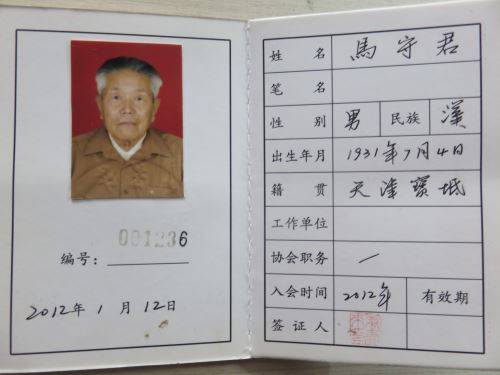 编号：001236
2012年1月12日
姓名 馬守君
笔名
性别 男 民族 漢
出生年月 1931年7月4日
籍贯 天津寶坻
工作单位
协会职务 /
入会时间 2012年 有效期
签证人